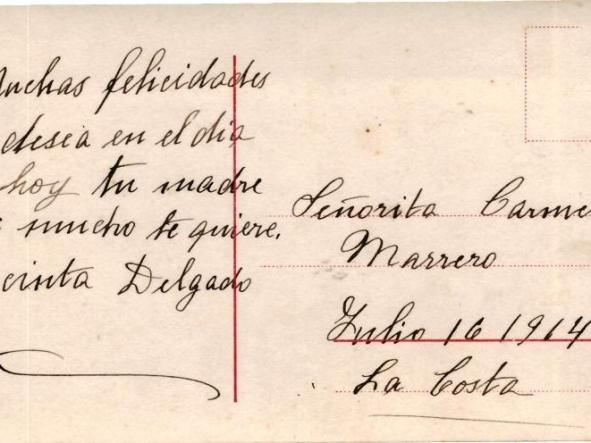 Muchas felicidades
desea en el dia
hoy tu madre
mucho te quiere.
cinta Delgado
Señorita Carme
Marrero
Julio 16 1914
La Costa